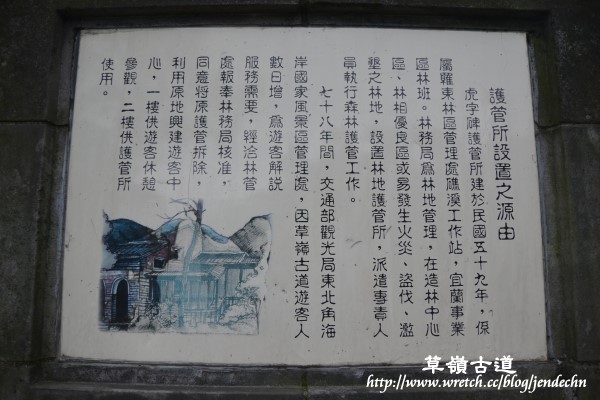 護管所設置之源由
虎字碑護管所建於民國五十九年，係
屬羅東林區管理處礁溪工作站，宜蘭事業
區林班。林務局為林地管理，在造林中心
區、林相優良區或易發生火災、盜伐、濫
墾之林地，設置林地護管所，派遣專責人
員執行森林護管工作。
七十八年間，交通部觀光局東北角海
岸國家風景區管理處，因草嶺古道遊客人
數日增，為遊客解說
服務需要，經洽林管
處報奉林務局核准，
同意將原護管拆除，
利用原地興建遊客中
心，一樓供遊客休憩
參觀，二樓供護管所
使用。
草嶺古道
http://www.wretch.cc/blog/jendechn